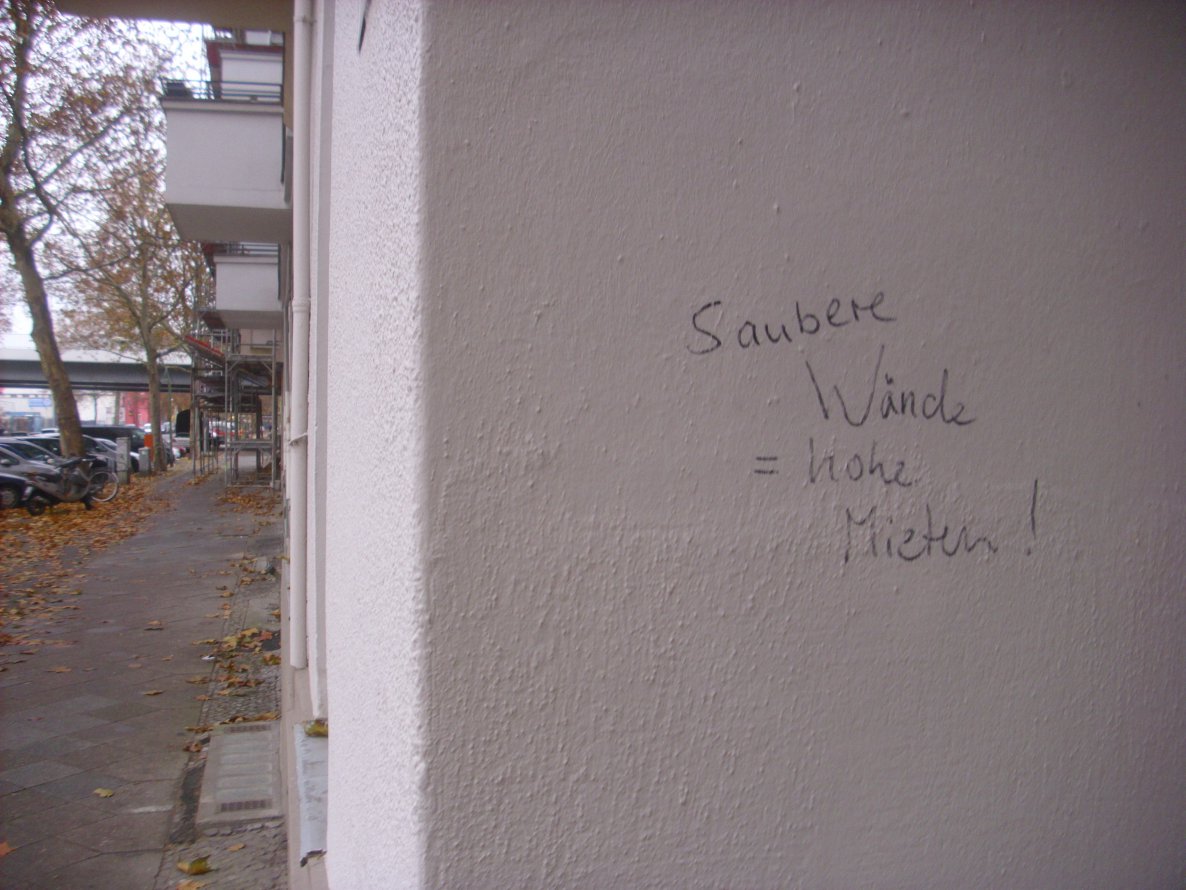 Saubere
Wände
= hohe
Mieten!